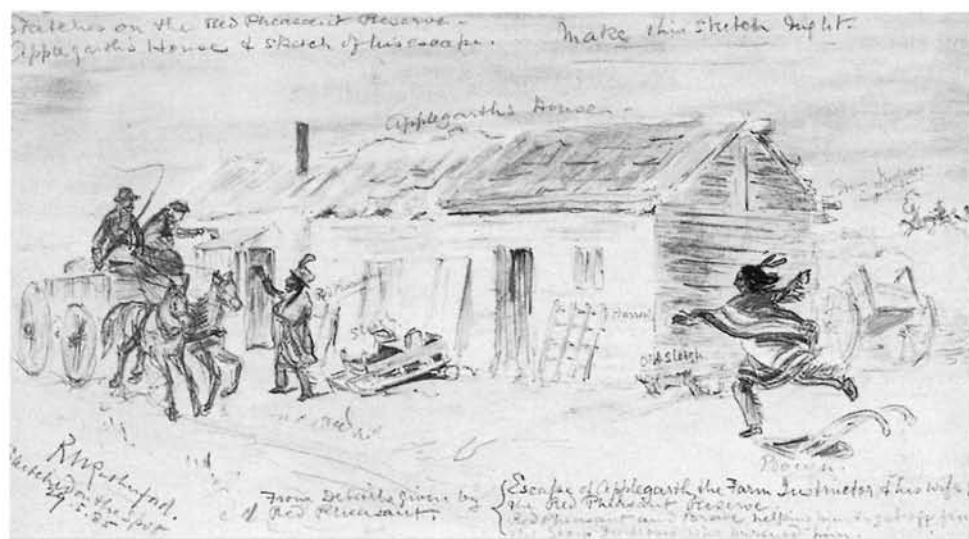 Sketches on the Red Pheasant Reserve.
Applegarth's House & Sketch of his escape.
Make this Sketch
Applegarth's House
Red
Harrow
Old Sleigh
R W Rutherford.
Sketched on the spot
29.5.85
From Details given by
of Red Pheasant.
Escape of Applegarth, the Farm Instructor & his wife
the Red Pheasant Reserve
Red Pheasant and Brave helping him to get off from
the Indians who pursued him.